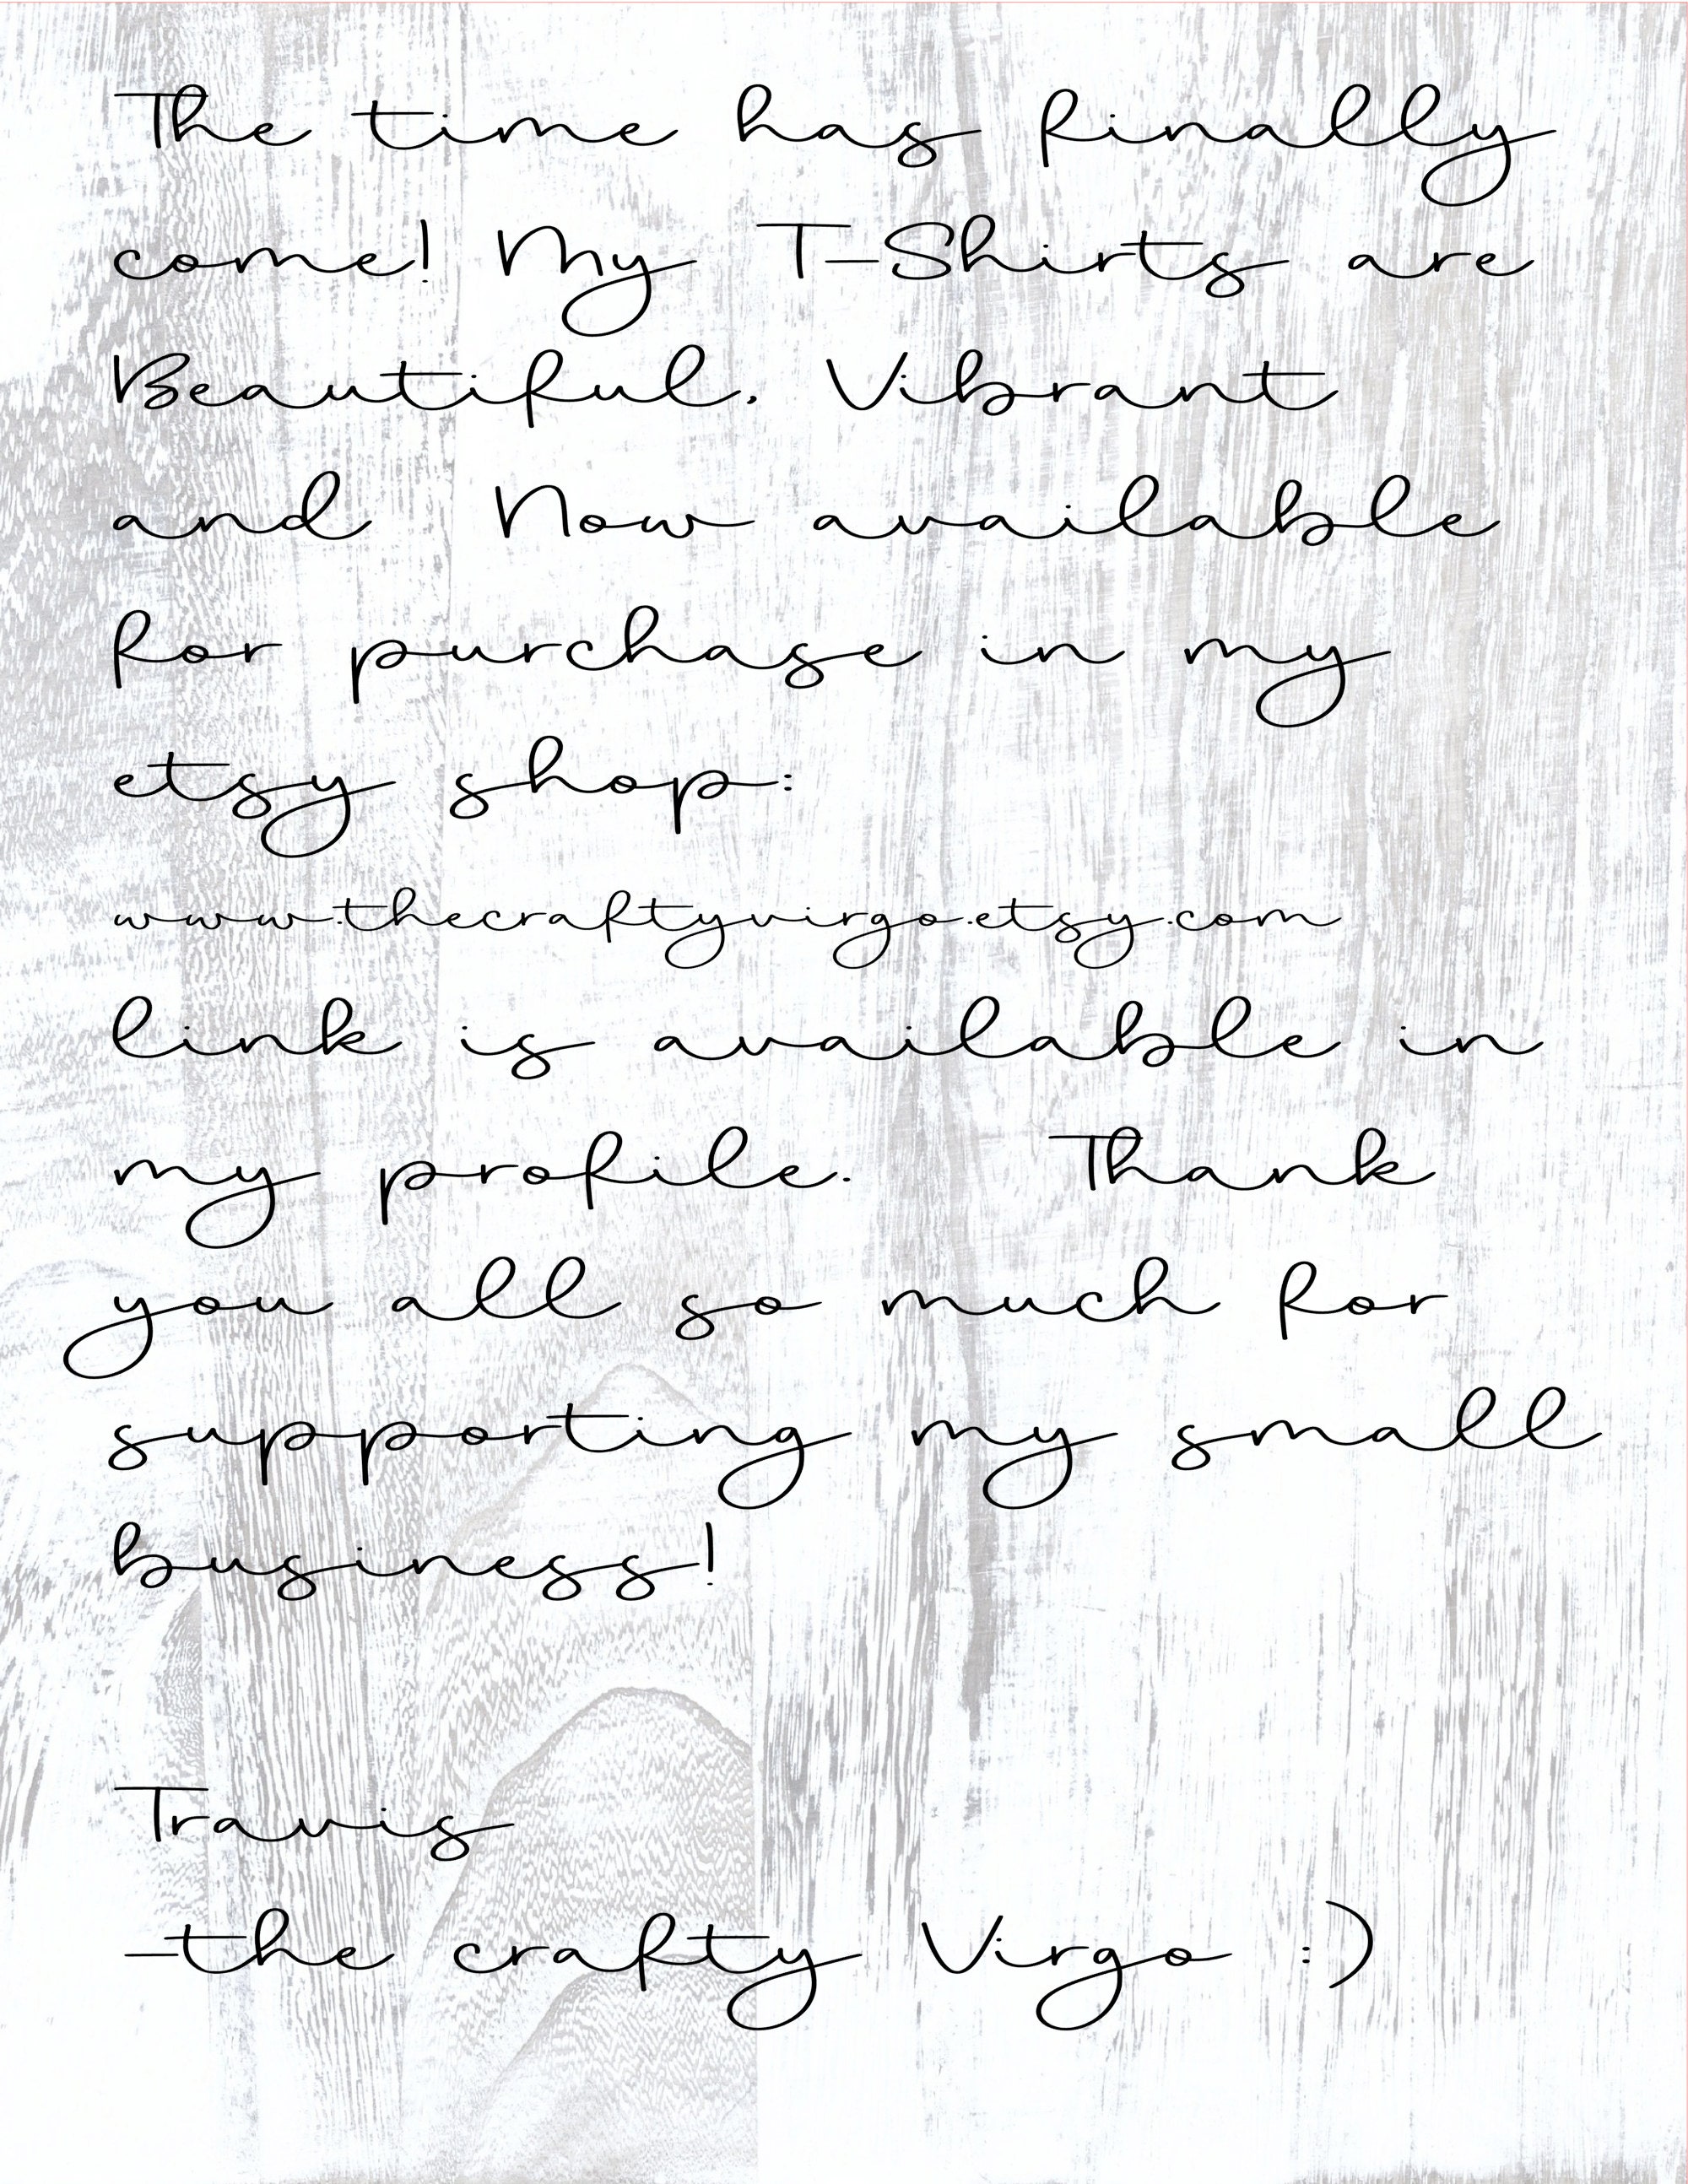 The time has finally
come! My T-Shirts are
Beautiful, Vibrant
and Now available
for purchase in my
etsy shop:
www.thecraftyvirgo.etsy.com
link is available in
my profile. Thank
you all so much for
supporting my small
business!
Travis
-the crafty Virgo :)